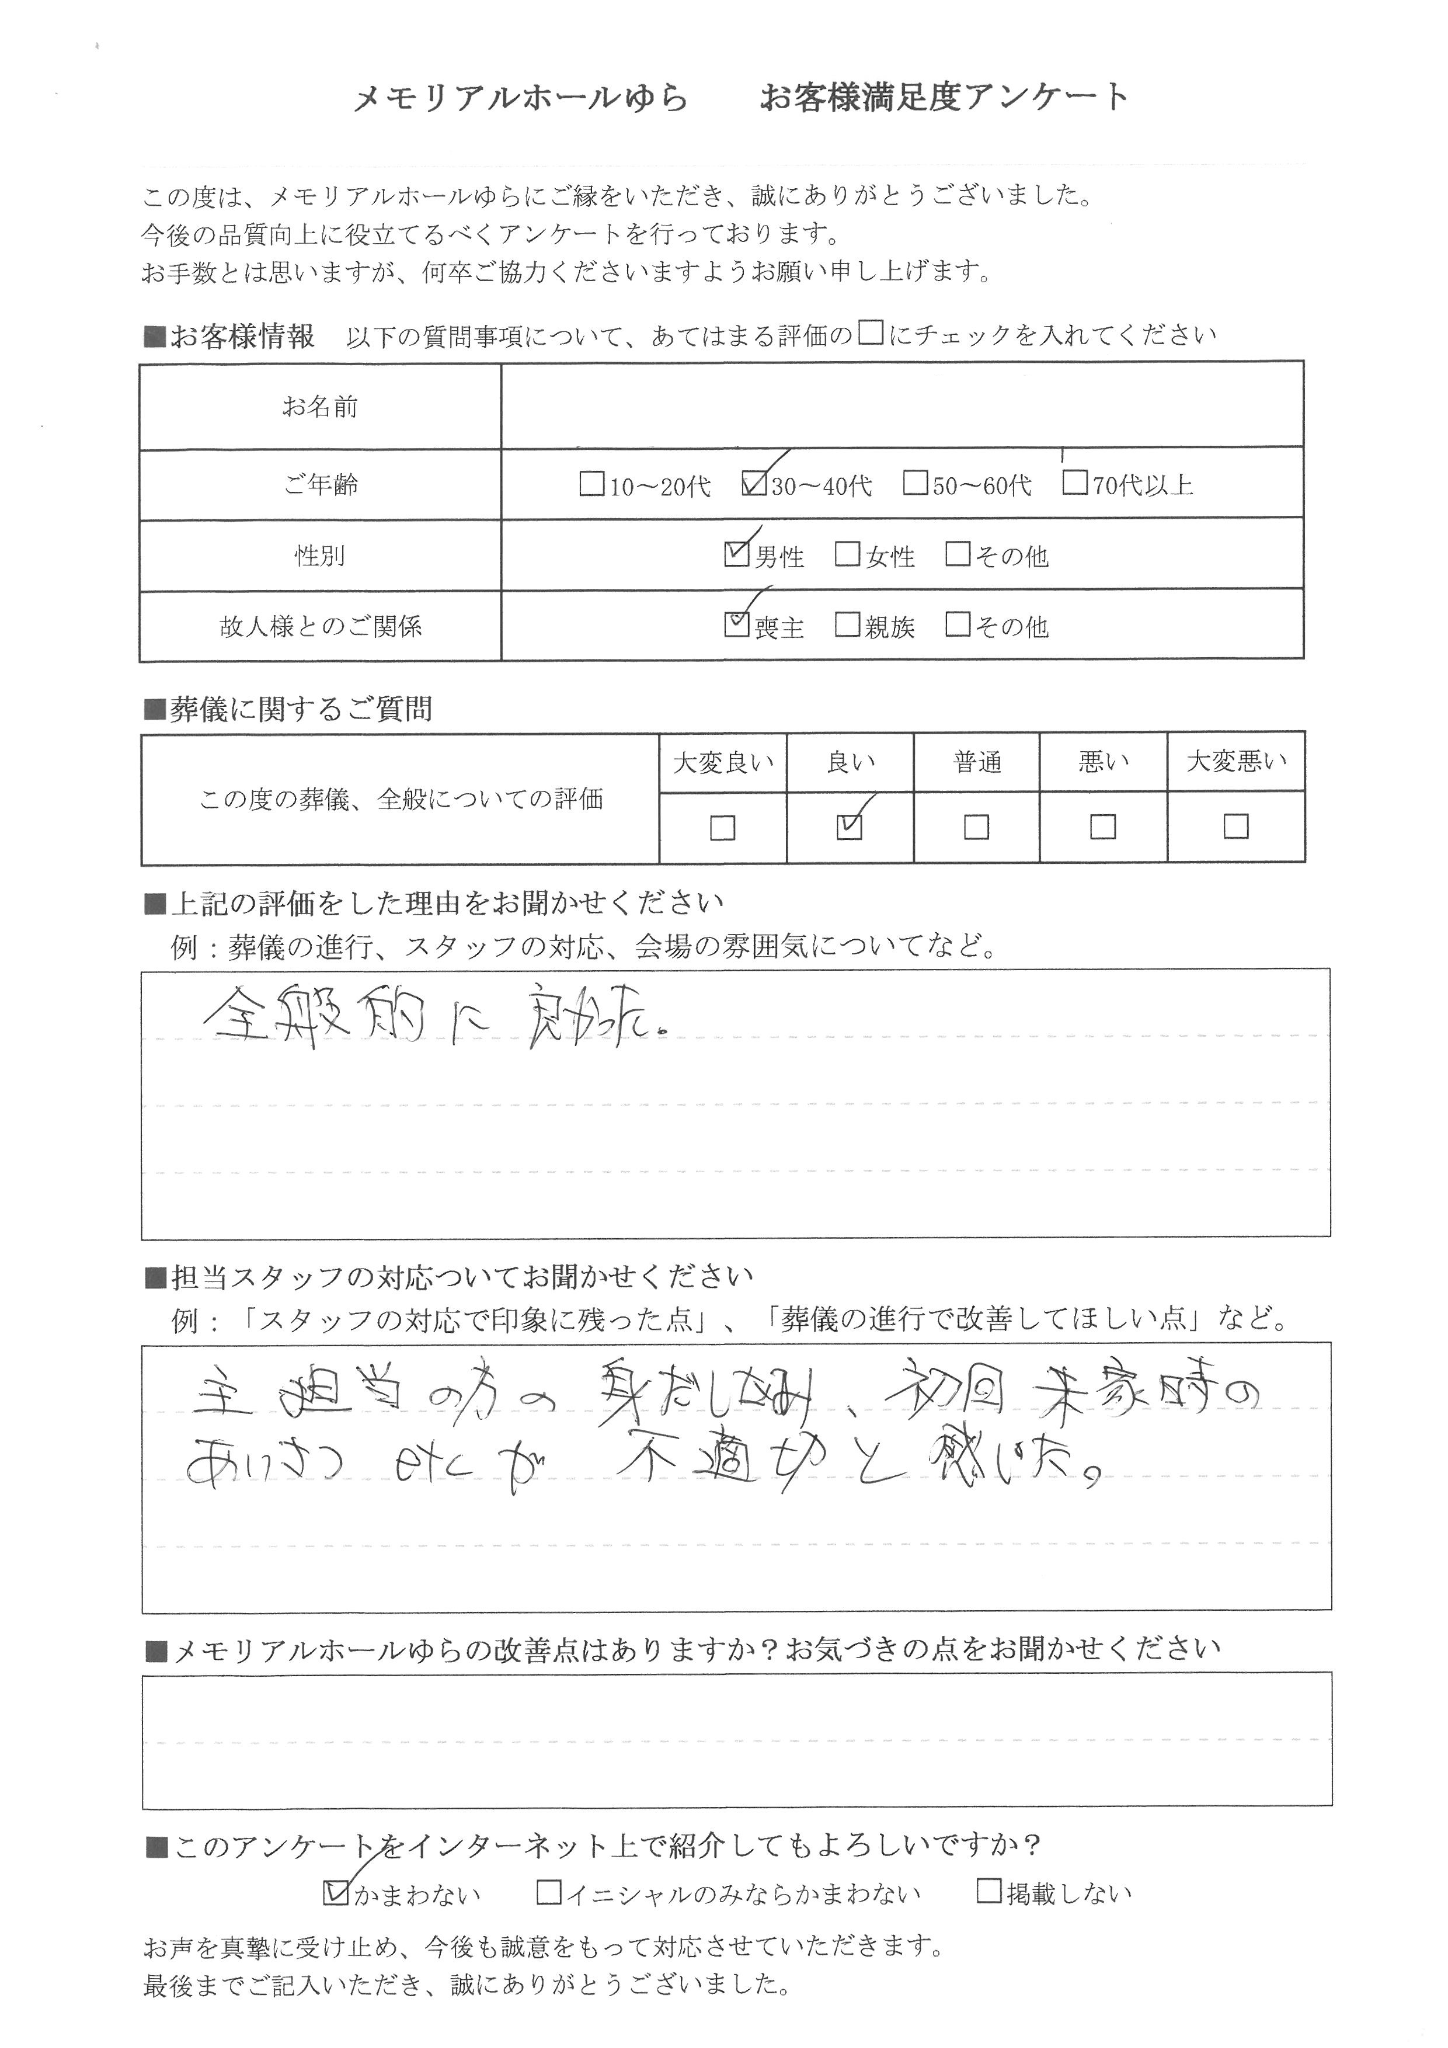 メモリアルホールゆら　　お客様満足度アンケート
この度は、メモリアルホールゆらにご縁をいただき、誠にありがとうございました。
今後の品質向上に役立てるべくアンケートを行っております。
お手数とは思いますが、何卒ご協力くださいますようお願い申し上げます。
■お客様情報　以下の質問事項について、あてはまる評価の□にチェックを入れてください
お名前
ご年齢　□10～20代　☑30～40代　□50～60代　□70代以上
性別　☑男性　□女性　□その他
故人様とのご関係　☑喪主　□親族　□その他
■葬儀に関するご質問
大変良い　良い　普通　悪い　大変悪い
この度の葬儀、全般についての評価
□　☑　□　□　□
■上記の評価をした理由をお聞かせください
例：葬儀の進行、スタッフの対応、会場の雰囲気についてなど。
全般的に良かった。
■担当スタッフの対応ついてお聞かせください
例：「スタッフの対応で印象に残った点」、「葬儀の進行で改善してほしい点」など。
主担当の方の身だしなみ、初回来家時の
あいさつ etcが不適切と感じた。
■メモリアルホールゆらの改善点はありますか？お気づきの点をお聞かせください
■このアンケートをインターネット上で紹介してもよろしいですか？
☑かまわない　□イニシャルのみならかまわない　□掲載しない
お声を真摯に受け止め、今後も誠意をもって対応させていただきます。
最後までご記入いただき、誠にありがとうございました。